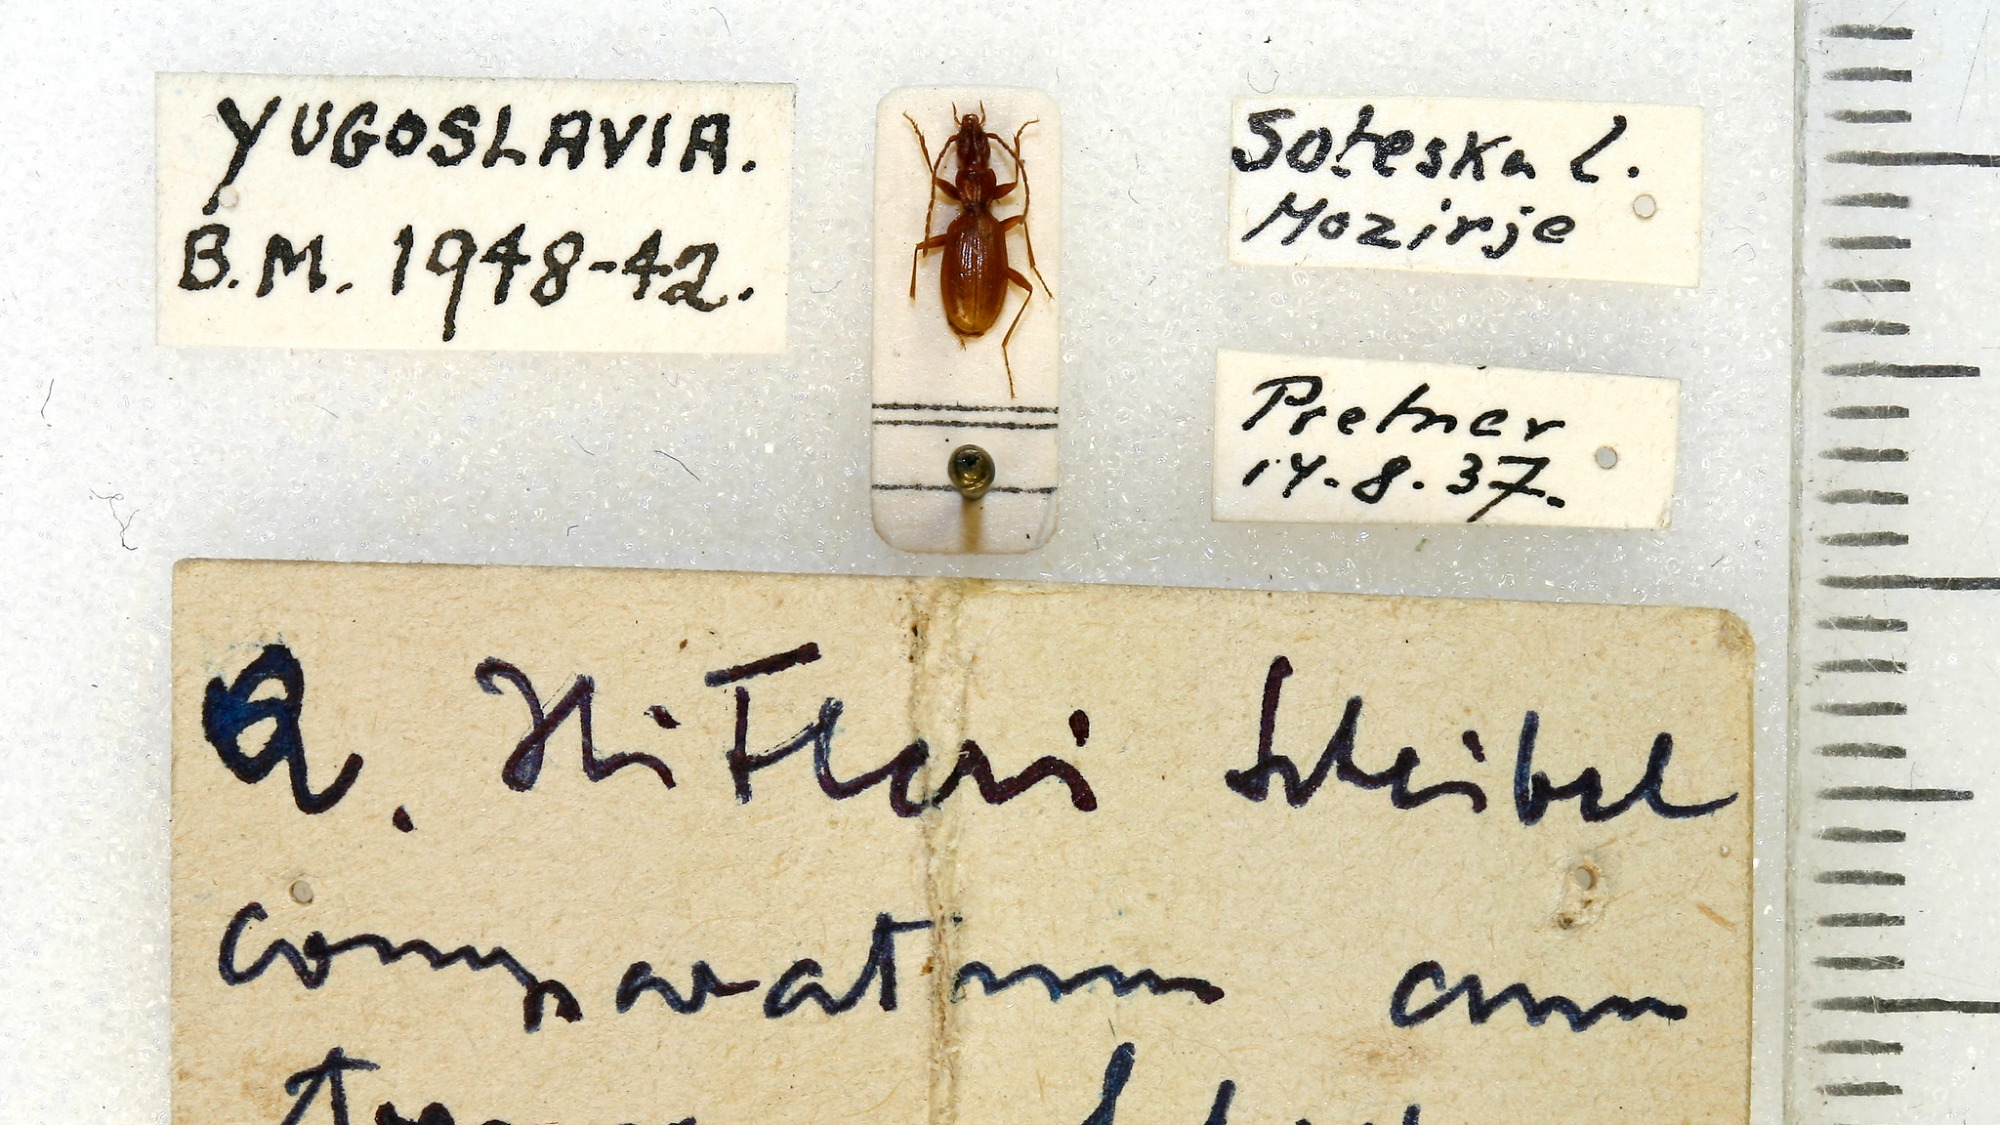 YUGOSLAVIA.
B.M. 1948-42.
Soteska l.
Mozirje
Pretner
14.8.37.
a. Hitleri Scheibel
comparatum cum